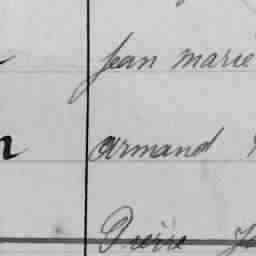 Jean marie
armand
Pierre